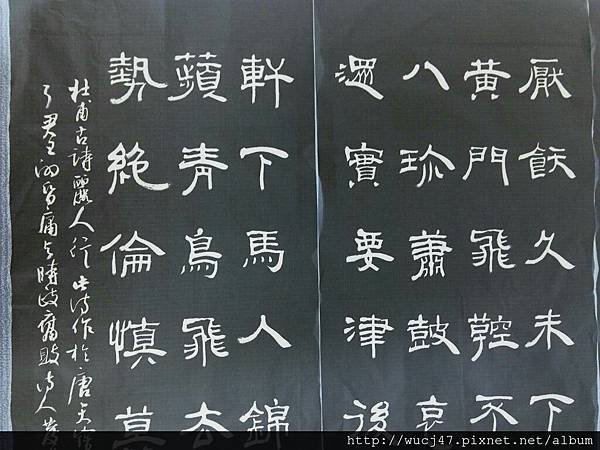 厭飫久未下
黃門飛鞚不
八珍蕭鼓哀
還實要津後
軒下馬人錦
蘋青鳥飛去
勢絕倫慎莫
杜甫古詩麗人行此詩作於唐天寶
了君王庸與時政腐敗詩人
http://wucj47.pixnet.net/album